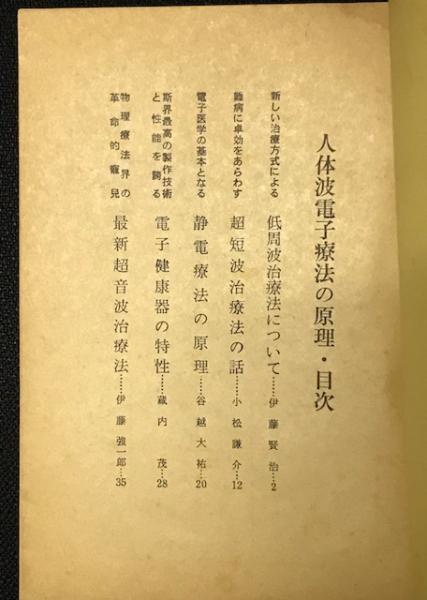 人体波電子療法の原理・目次
新しい治療方式による
低周波治療法について……伊藤賢治…2
難病に卓効をあらわす
超短波治療法の話……小松謙介…12
電子医学の基本となる
静電療法の原理……谷越大祐…20
斯界最高の製作技術
と性能を誇る
電子健康器の特性……蔵内茂…28
物理療法界の
革命的寵児
最新超音波治療法……伊藤強一郎…35